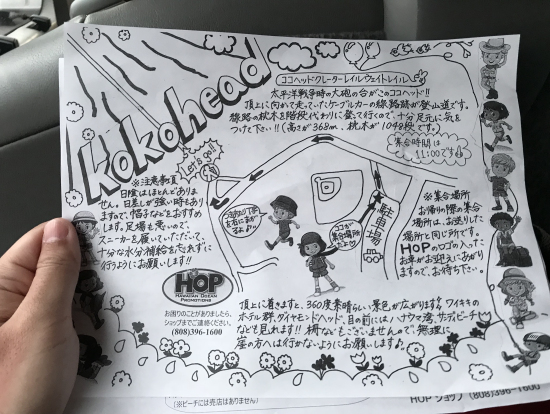 kokohead
ココヘッドクレーターレイルウェイトレイル
太平洋戦争時の大砲の台がこのココヘッド!!
頂上に向かて走っていたケーブルカーの線路跡が登山道です。
線路の枕木を階段代わりに登って行くので、十分足元に気を
つけて下さい!!(高さが368m、枕木が1048段です。)
集合時間は
11:00です
Let's go!!
※注意事項
日陰はほとんどありま
せん。日差しが強い時もあり
ますので、帽子などをおすすめ
します。足場も悪いので、
スニーカーを履いていただいて、
十分な水分補給も忘れずに
行うようにお願いします!!
駐車場
ココが
集合場所
※集合場所
お帰りの際の集合
場所は、お送りした
場所と同じ所です。
HOPのロゴの入った
お車がお迎えにあがり
ますので、お待ち下さい。
HOP
HAWAIIAN OCEAN
PROMOTIONS
お困りのことがありましたら、
ショップまでご連絡ください。
(808)396-1600
頂上に着きますと、360度素晴らしい景色が広がります。ワイキキの
ホテル群、ダイヤモンドヘッド、目の前にはハナウマ湾、サンディビーチ
なども見れます!! 柵などもございませんので、無理に
崖の方へは行かないようにお願いします
※ビーチには売店はありません)
HOP ショップ (808)396-1600